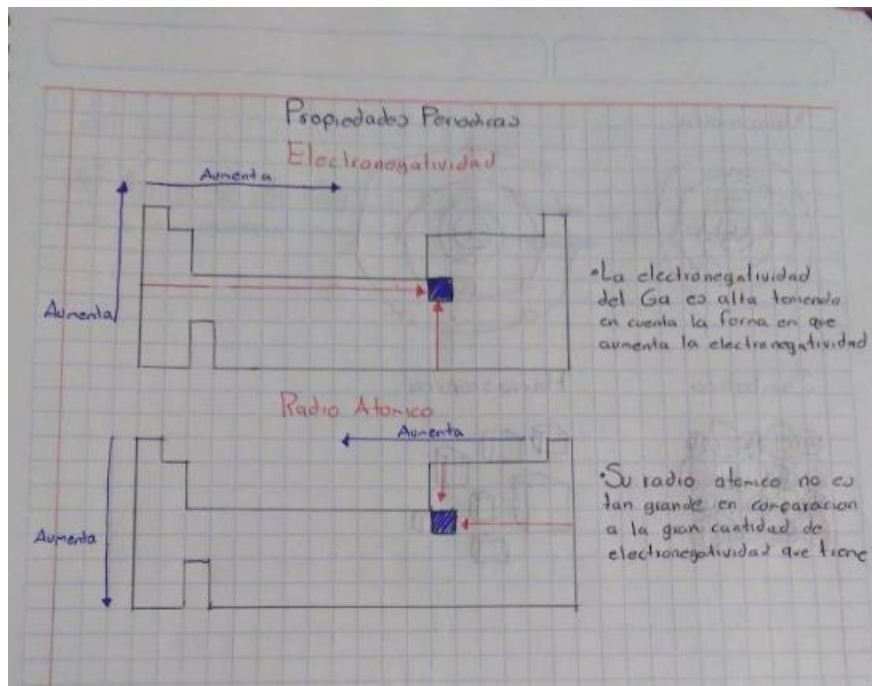 Propiedades Periodicas
Electronegatividad
Aumenta
Aumenta
•La electronegatividad
del Ga es alta teniendo
en cuenta la forma en que
aumenta la electronegatividad
Radio Atomico
Aumenta
Aumenta
•Su radio atomico no es
tan grande en comparacion
a la gran cantidad de
electronegatividad que tiene